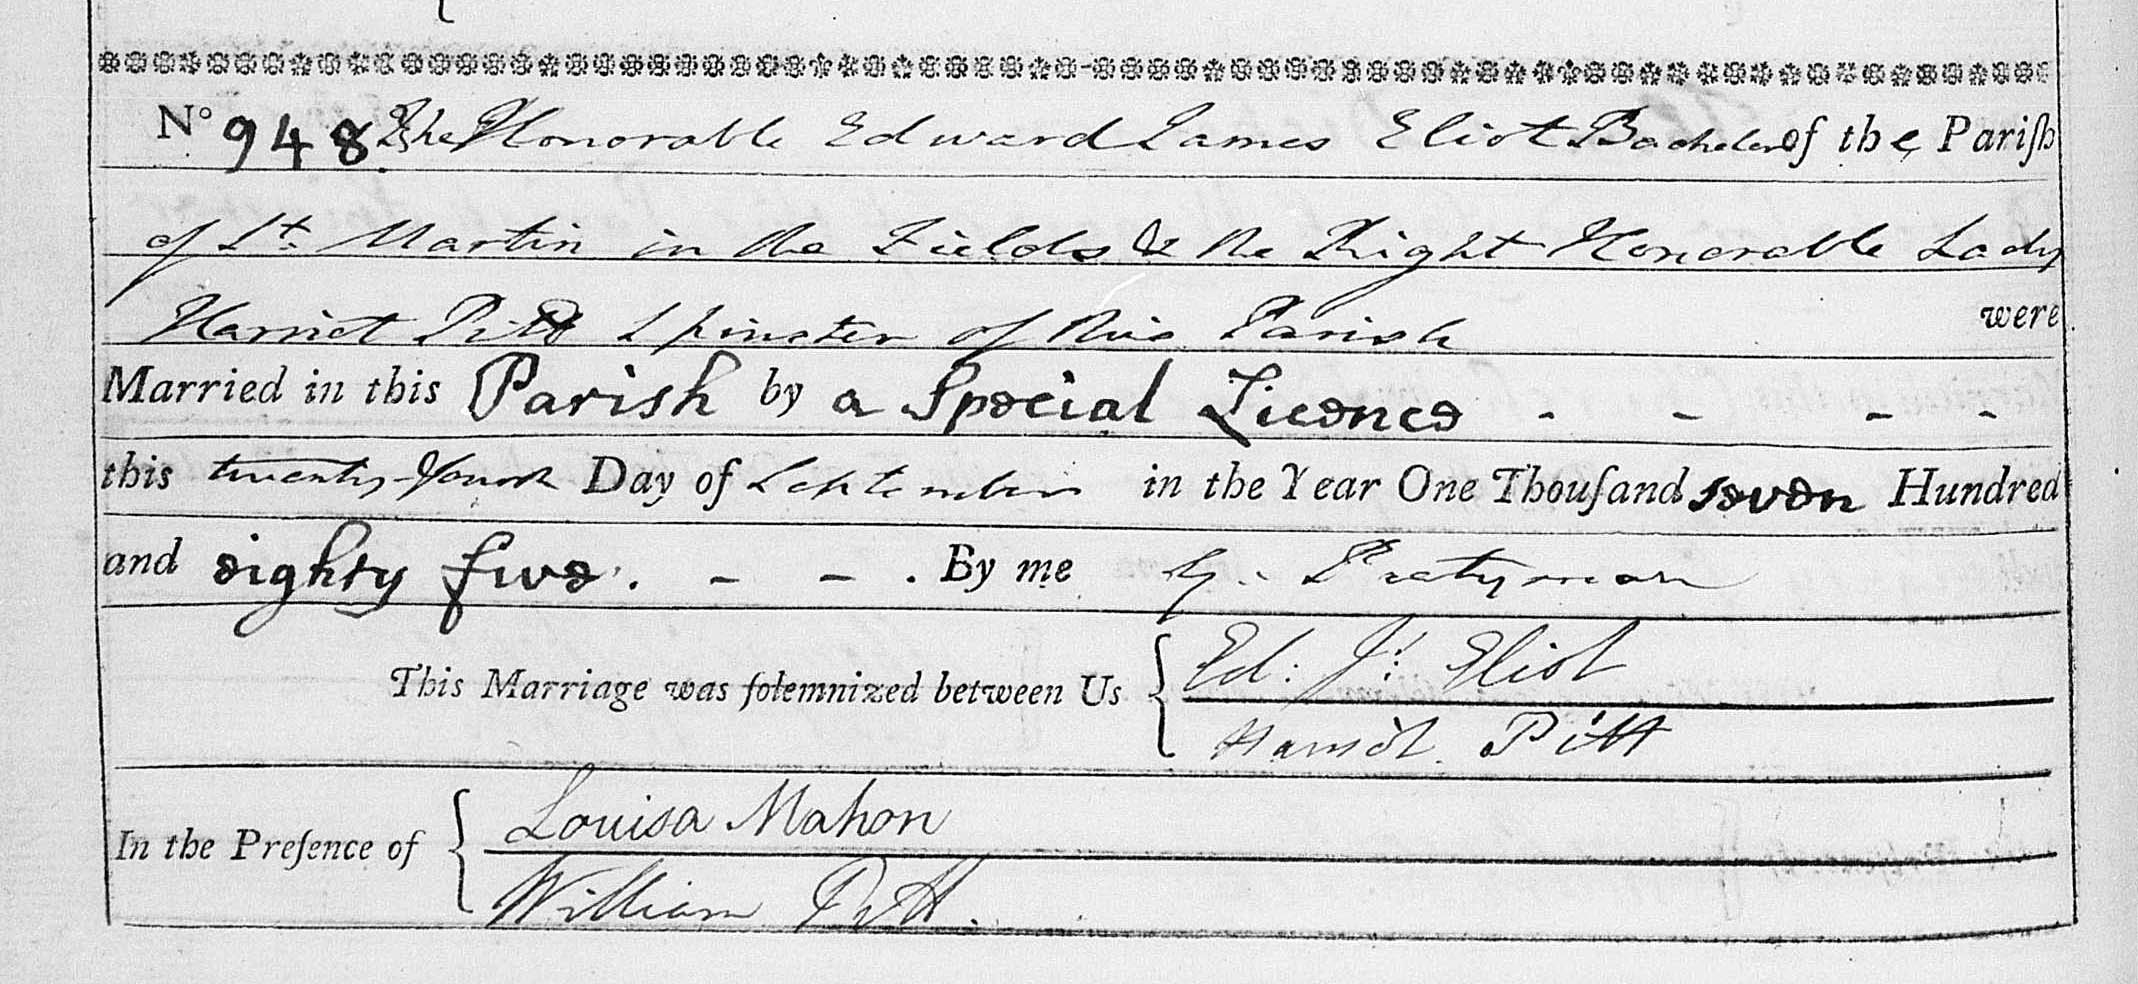 No 948. The Honorable Edward James Eliot Bachelor of the Pariſh
of St. Martin in the Fields & the Right Honorable Lady
Harriet Pitt Spinster of this Parish were
Married in this Parish by a Special Licence - - - -
this twenty-fourth Day of September in the Year One Thouſand seven Hundred
and eighty five. - - . By me G. Pretyman
This Marriage was ſolemnized between Us { Ed: Js: Eliot
Harriot Pitt
In the Preſence of { Louisa Mahon
William Pitt.